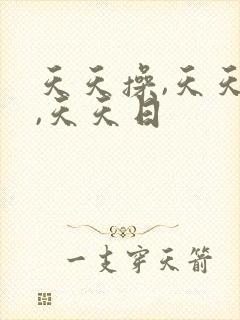 天天操,天天
,天天日
一支穿天箭